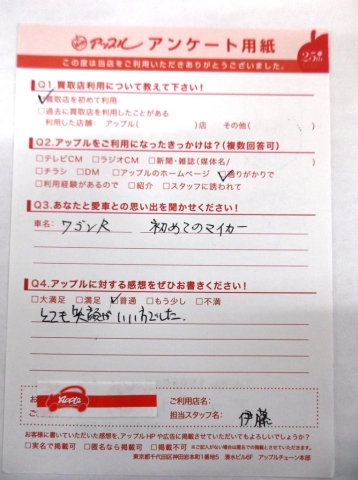 アップル アンケート用紙
25th
この度は当店をご利用いただきありがとうございました。
Q1.買取店利用について教えて下さい!
☑買取店を初めて利用
□過去に買取店を利用したことがある
利用した店舗: アップル( )店 その他( )
Q2.アップルをご利用になったきっかけは?(複数回答可)
□テレビCM □ラジオCM □新聞・雑誌(媒体名/ )
□チラシ □DM □アップルのホームページ ☑通りがかりで
□利用経験があるので □紹介 □スタッフに誘われて
Q3.あなたと愛車との思い出を聞かせください!
車名: ワゴンR 初めてのマイカー
Q4.アップルに対する感想をぜひお書きください!
□大満足 □満足 ☑普通 □もう少し □不満
とても笑顔がいい方でした。
お
ご利用店名:
ご
担当スタッフ名: 伊藤
お客様に書いていただいた感想を、アップルHPや広告に掲載させていただいてもよろしいでしょうか?
□実名で掲載可 □匿名なら掲載可 □掲載不可 ※ご記入がない場合は匿名での掲載とさせていただきます。
東京都千代田区神田岩本町1番地5 清水ビル6F アップルチェーン本部